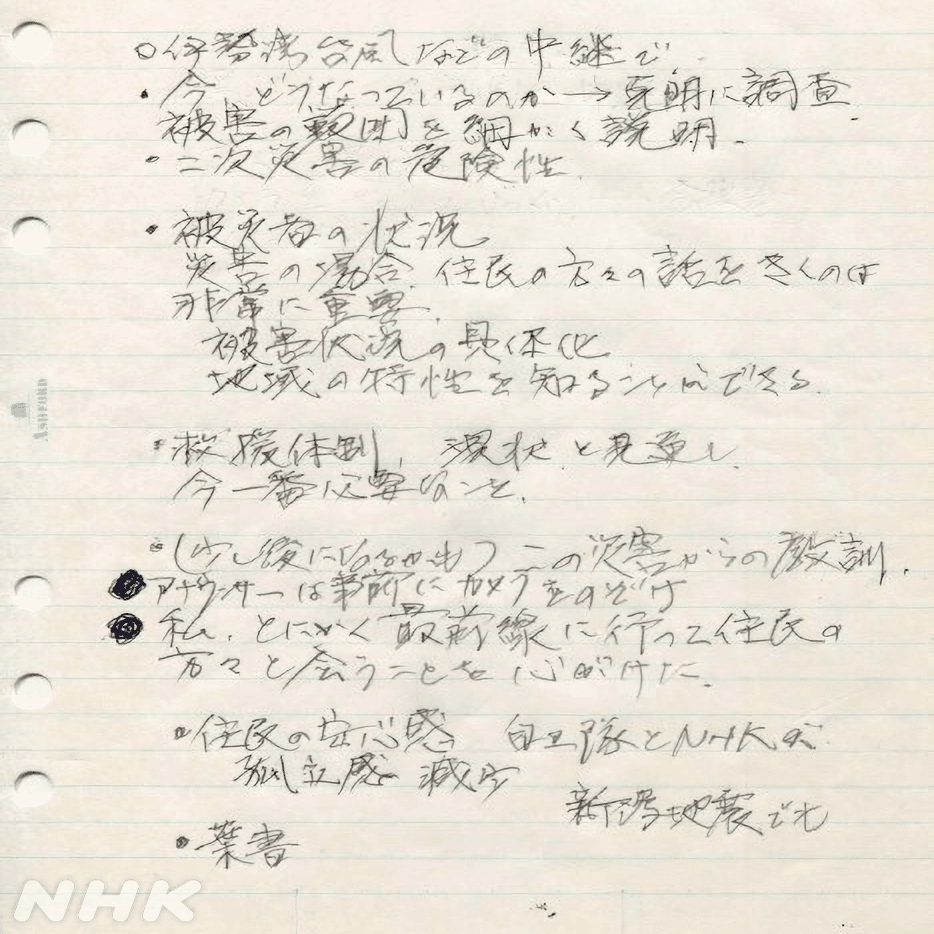 ○伊勢湾台風などの中継で
・今、どうなっているのか→克明に調査
被害の範囲を細かく説明.
・二次災害の危険性.
・被災者の状況
災害の場合.住民の方々の話をきくのは
非常に重要.
被害状況の具体化
地域の特性を知ることができる.
・救援体制、現状と見通し
今一番必要なこと.
・(少し後になるが)この災害からの教訓.
●アナウンサーは事前にカメラをのぞけ
●私、とにかく最前線に行って住民の
方々と会うことを心がけた.
・住民の安心感 自衛隊とNHKが
孤立感減少
新潟地震でも
・葉書
ASHFORD
NHK